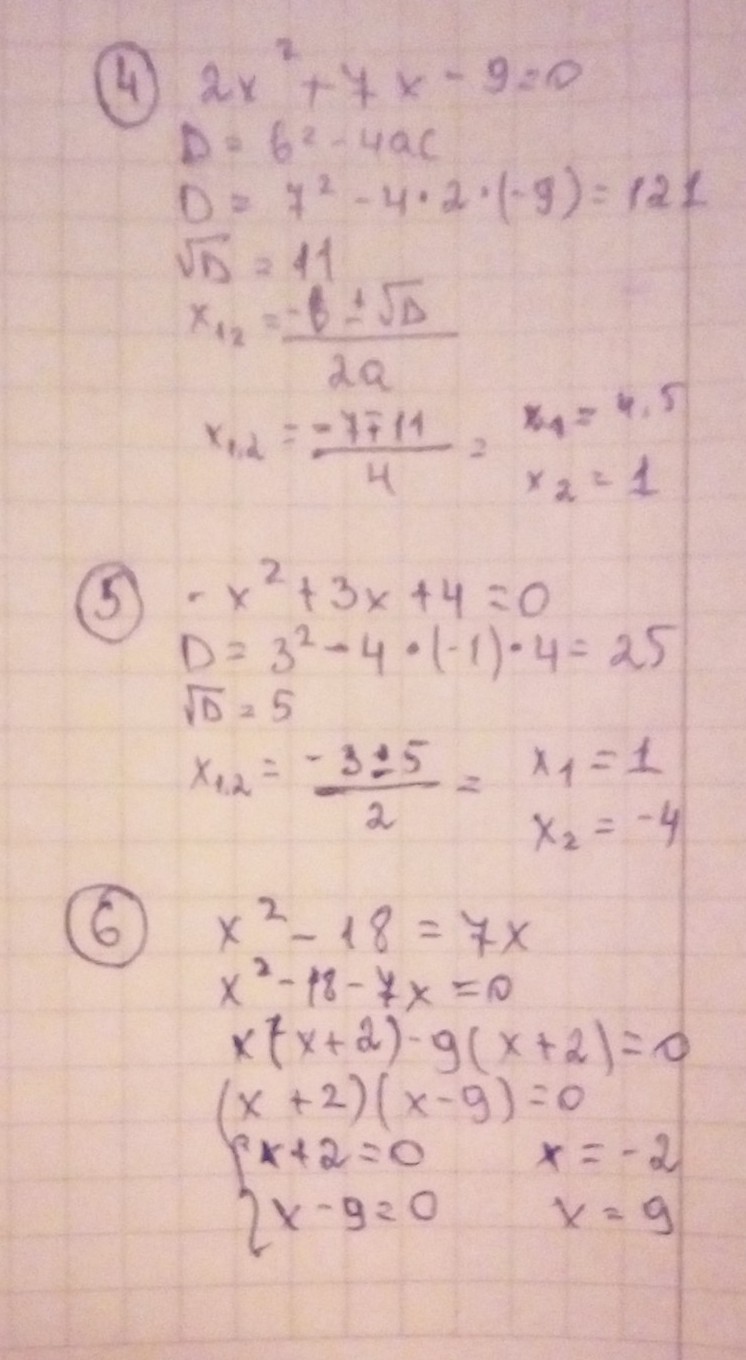 ④ 2x² + 7x - 9 = 0
D = b² - 4ac
D = 7² - 4 · 2 · (-9) = 121
√D = 11
x₁,₂ = (-b ± √D) / 2a
x₁,₂ = (-7 ∓ 11) / 4 = x₁ = 4,5
x₂ = 1
⑤ - x² + 3x + 4 = 0
D = 3² - 4 · (-1) · 4 = 25
√D = 5
x₁,₂ = (-3 ± 5) / 2 = x₁ = 1
x₂ = -4
⑥ x² - 18 = 7x
x² - 18 - 7x = 0
x(x + 2) - 9(x + 2) = 0
(x + 2)(x - 9) = 0
{ x + 2 = 0 x = -2
x - 9 = 0 x = 9